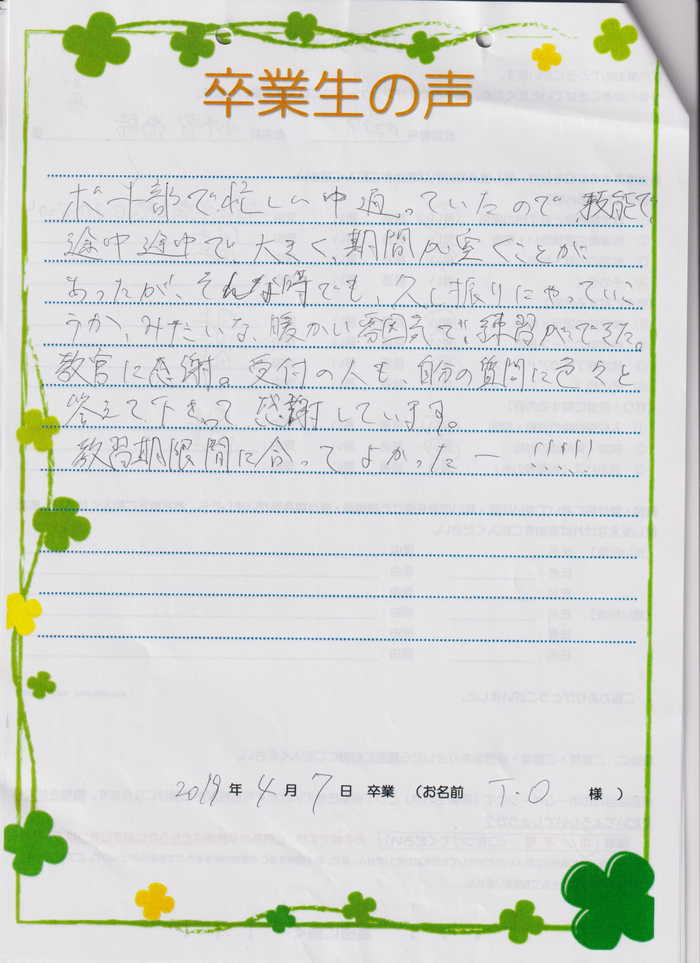 卒業生の声
ボート部で忙しい中通っていたので、技能で
途中途中で大きく、期間が空くことが
あったが、そんな時でも、久し振りにやっていこ
うか、みたいな、暖かい雰囲気で、練習ができた。
教官に感謝。受付の人も、自分の質問に色々と
答えて下さって感謝しています。
教習期限間に合ってよかったー !!!!!
2019年4月7日 卒業 (お名前 T.O 様)